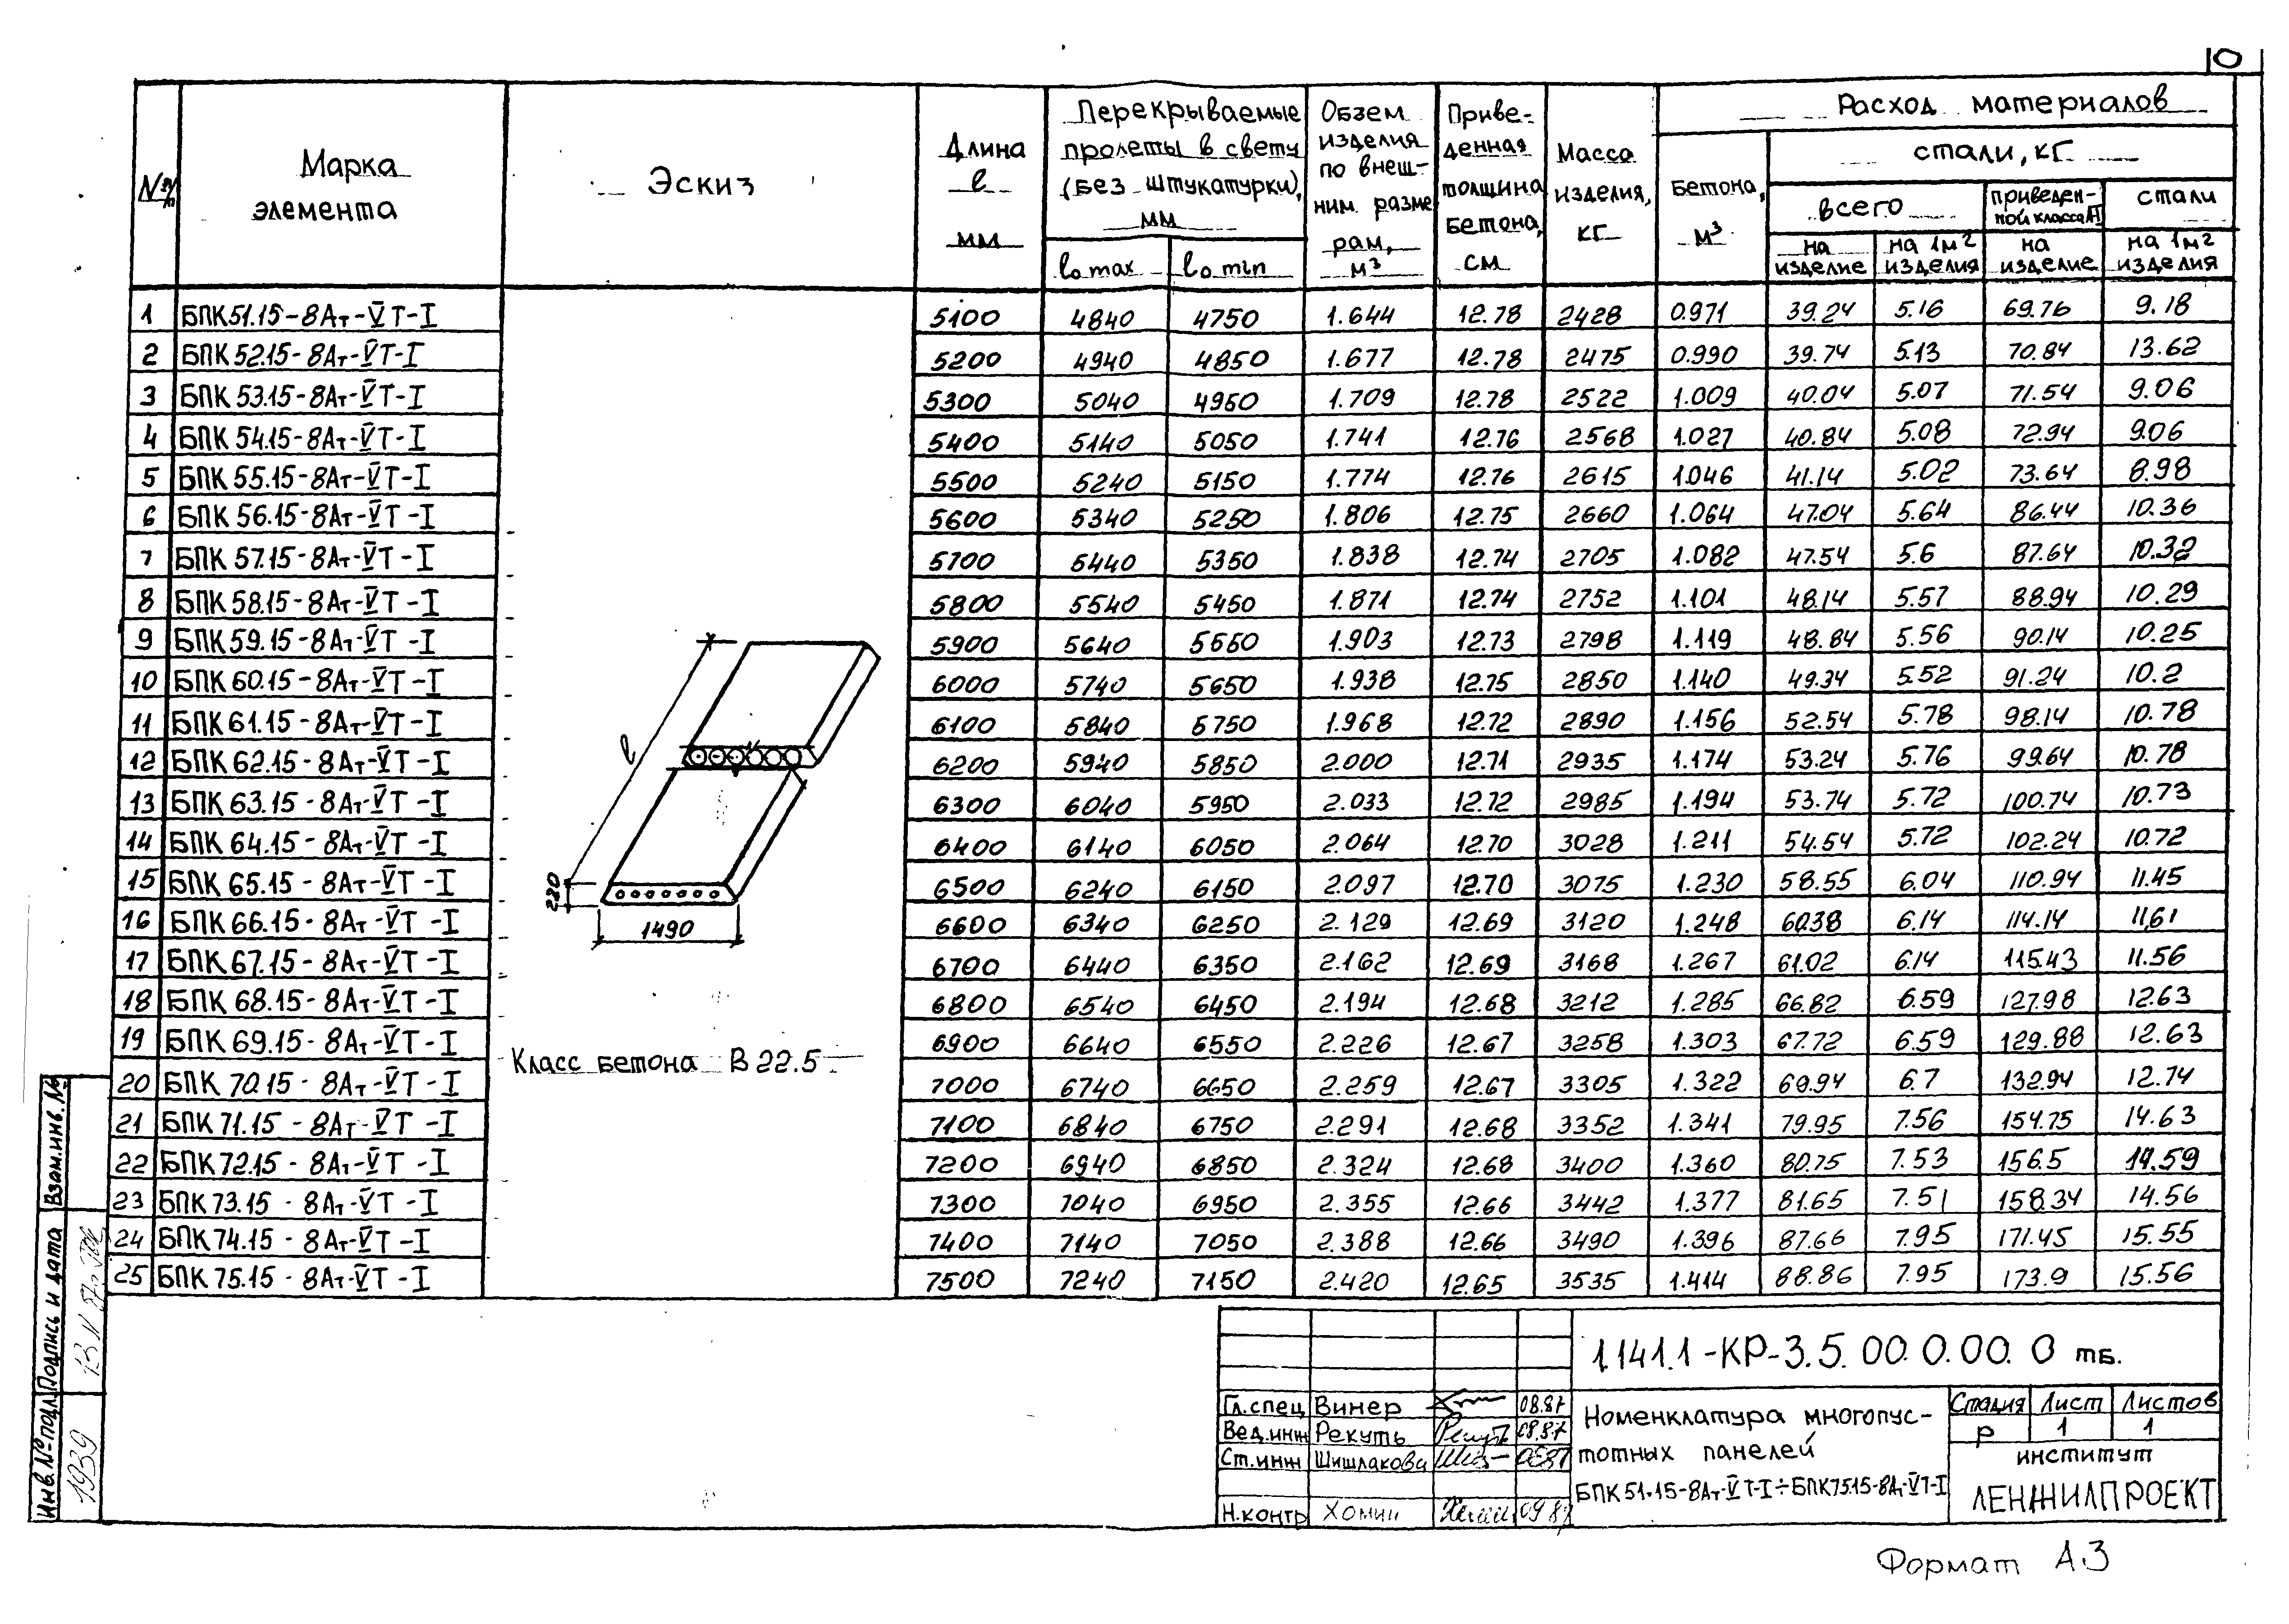 0
№ п/п
Марка элемента
Эскиз
Длина l мм
Перекрываемые пролеты в свету (без штукатурки), мм
l₀ max
l₀ min
Объем изделия по внеш- ним. разме рам, м³
Приве- денная толщина бетона, см
Масса изделия, кг
Расход материалов
Бетона, м³
стали, кг
всего
приведен- ной класса АI
стали
на изделие
на 1м2 изделия
на изделие
на 1м2 изделия
1 БПК51.15-8Ат-VТ-I 5100 4840 4750 1.644 12.78 2428 0.971 39.24 5.16 69.76 9.18
2 БПК52.15-8Ат-VТ-I 5200 4940 4850 1.677 12.78 2475 0.990 39.74 5.13 70.84 13.62
3 БПК53.15-8Ат-VТ-I 5300 5040 4950 1.709 12.78 2522 1.009 40.04 5.07 71.54 9.06
4 БПК54.15-8Ат-VТ-I 5400 5140 5050 1.741 12.76 2568 1.027 40.84 5.08 72.94 9.06
5 БПК55.15-8Ат-VТ-I 5500 5240 5150 1.774 12.76 2615 1.046 41.14 5.02 73.64 8.98
6 БПК56.15-8Ат-VТ-I 5600 5340 5250 1.806 12.75 2660 1.064 47.04 5.64 86.44 10.36
7 БПК57.15-8Ат-VТ-I 5700 5440 5350 1.838 12.74 2705 1.082 47.54 5.6 87.64 10.32
8 БПК58.15-8Ат-VТ-I 5800 5540 5450 1.871 12.74 2752 1.101 48.14 5.57 88.94 10.29
9 БПК59.15-8Ат-VТ-I 5900 5640 5550 1.903 12.73 2798 1.119 48.84 5.56 90.14 10.25
10 БПК60.15-8Ат-VТ-I 6000 5740 5650 1.938 12.75 2850 1.140 49.34 5.52 91.24 10.2
11 БПК61.15-8Ат-VТ-I 6100 5840 5750 1.968 12.72 2890 1.156 52.54 5.78 98.14 10.78
12 БПК62.15-8Ат-VТ-I 6200 5940 5850 2.000 12.71 2935 1.174 53.24 5.76 99.64 10.78
13 БПК63.15-8Ат-VТ-I 6300 6040 5950 2.033 12.72 2985 1.194 53.74 5.72 100.74 10.73
14 БПК64.15-8Ат-VТ-I 6400 6140 6050 2.064 12.70 3028 1.211 54.54 5.72 102.24 10.72
15 БПК65.15-8Ат-VТ-I 6500 6240 6150 2.097 12.70 3075 1.230 58.55 6.04 110.94 11.45
16 БПК66.15-8Ат-VТ-I 6600 6340 6250 2.129 12.69 3120 1.248 60.38 6.14 114.14 11,61
17 БПК67.15-8Ат-VТ-I 6700 6440 6350 2.162 12.69 3168 1.267 61.02 6.14 115.43 11.56
18 БПК68.15-8Ат-VТ-I 6800 6540 6450 2.194 12.68 3212 1.285 66.82 6.59 127.98 12.63
19 БПК69.15-8Ат-VТ-I 6900 6640 6550 2.226 12.67 3258 1.303 67.72 6.59 129.88 12.63
20 БПК70.15-8Ат-VТ-I 7000 6740 6650 2.259 12.67 3305 1.322 69.94 6.7 132.94 12.74
21 БПК71.15-8Ат-VТ-I 7100 6840 6750 2.291 12.68 3352 1.341 79.95 7.56 154.75 14.63
22 БПК72.15-8Ат-VТ-I 7200 6940 6850 2.324 12.68 3400 1.360 80.75 7.53 156.5 14.59
23 БПК73.15-8Ат-VТ-I 7300 7040 6950 2.355 12.66 3442 1.377 81.65 7.51 158.34 14.56
24 БПК74.15-8Ат-VТ-I 7400 7140 7050 2.388 12.66 3490 1.396 87.66 7.95 171.45 15.55
25 БПК75.15-8Ат-VТ-I 7500 7240 7150 2.420 12.65 3535 1.414 88.86 7.95 173.9 15.56
l
220
1490
Класс бетона В 22.5
Взам.инв.№
Подпись и дата
Инв.№подл.
1939
1.141.1-КР-3.5.00.0.00.0 тб.
Гл.спец Винер 08.87
Вед.инж Рекуть 08.87
Ст.инж Шишлакова 0887
Н.контр Хомич 09 87
Номенклатура многопус-
тотных панелей
БПК51.15-8Ат-VТ-I÷БПК75.15-8Ат-VТ-I
Стадия Лист Листов
Р 1 1
институт
ЛЕНЖИЛПРОЕКТ
Формат А3